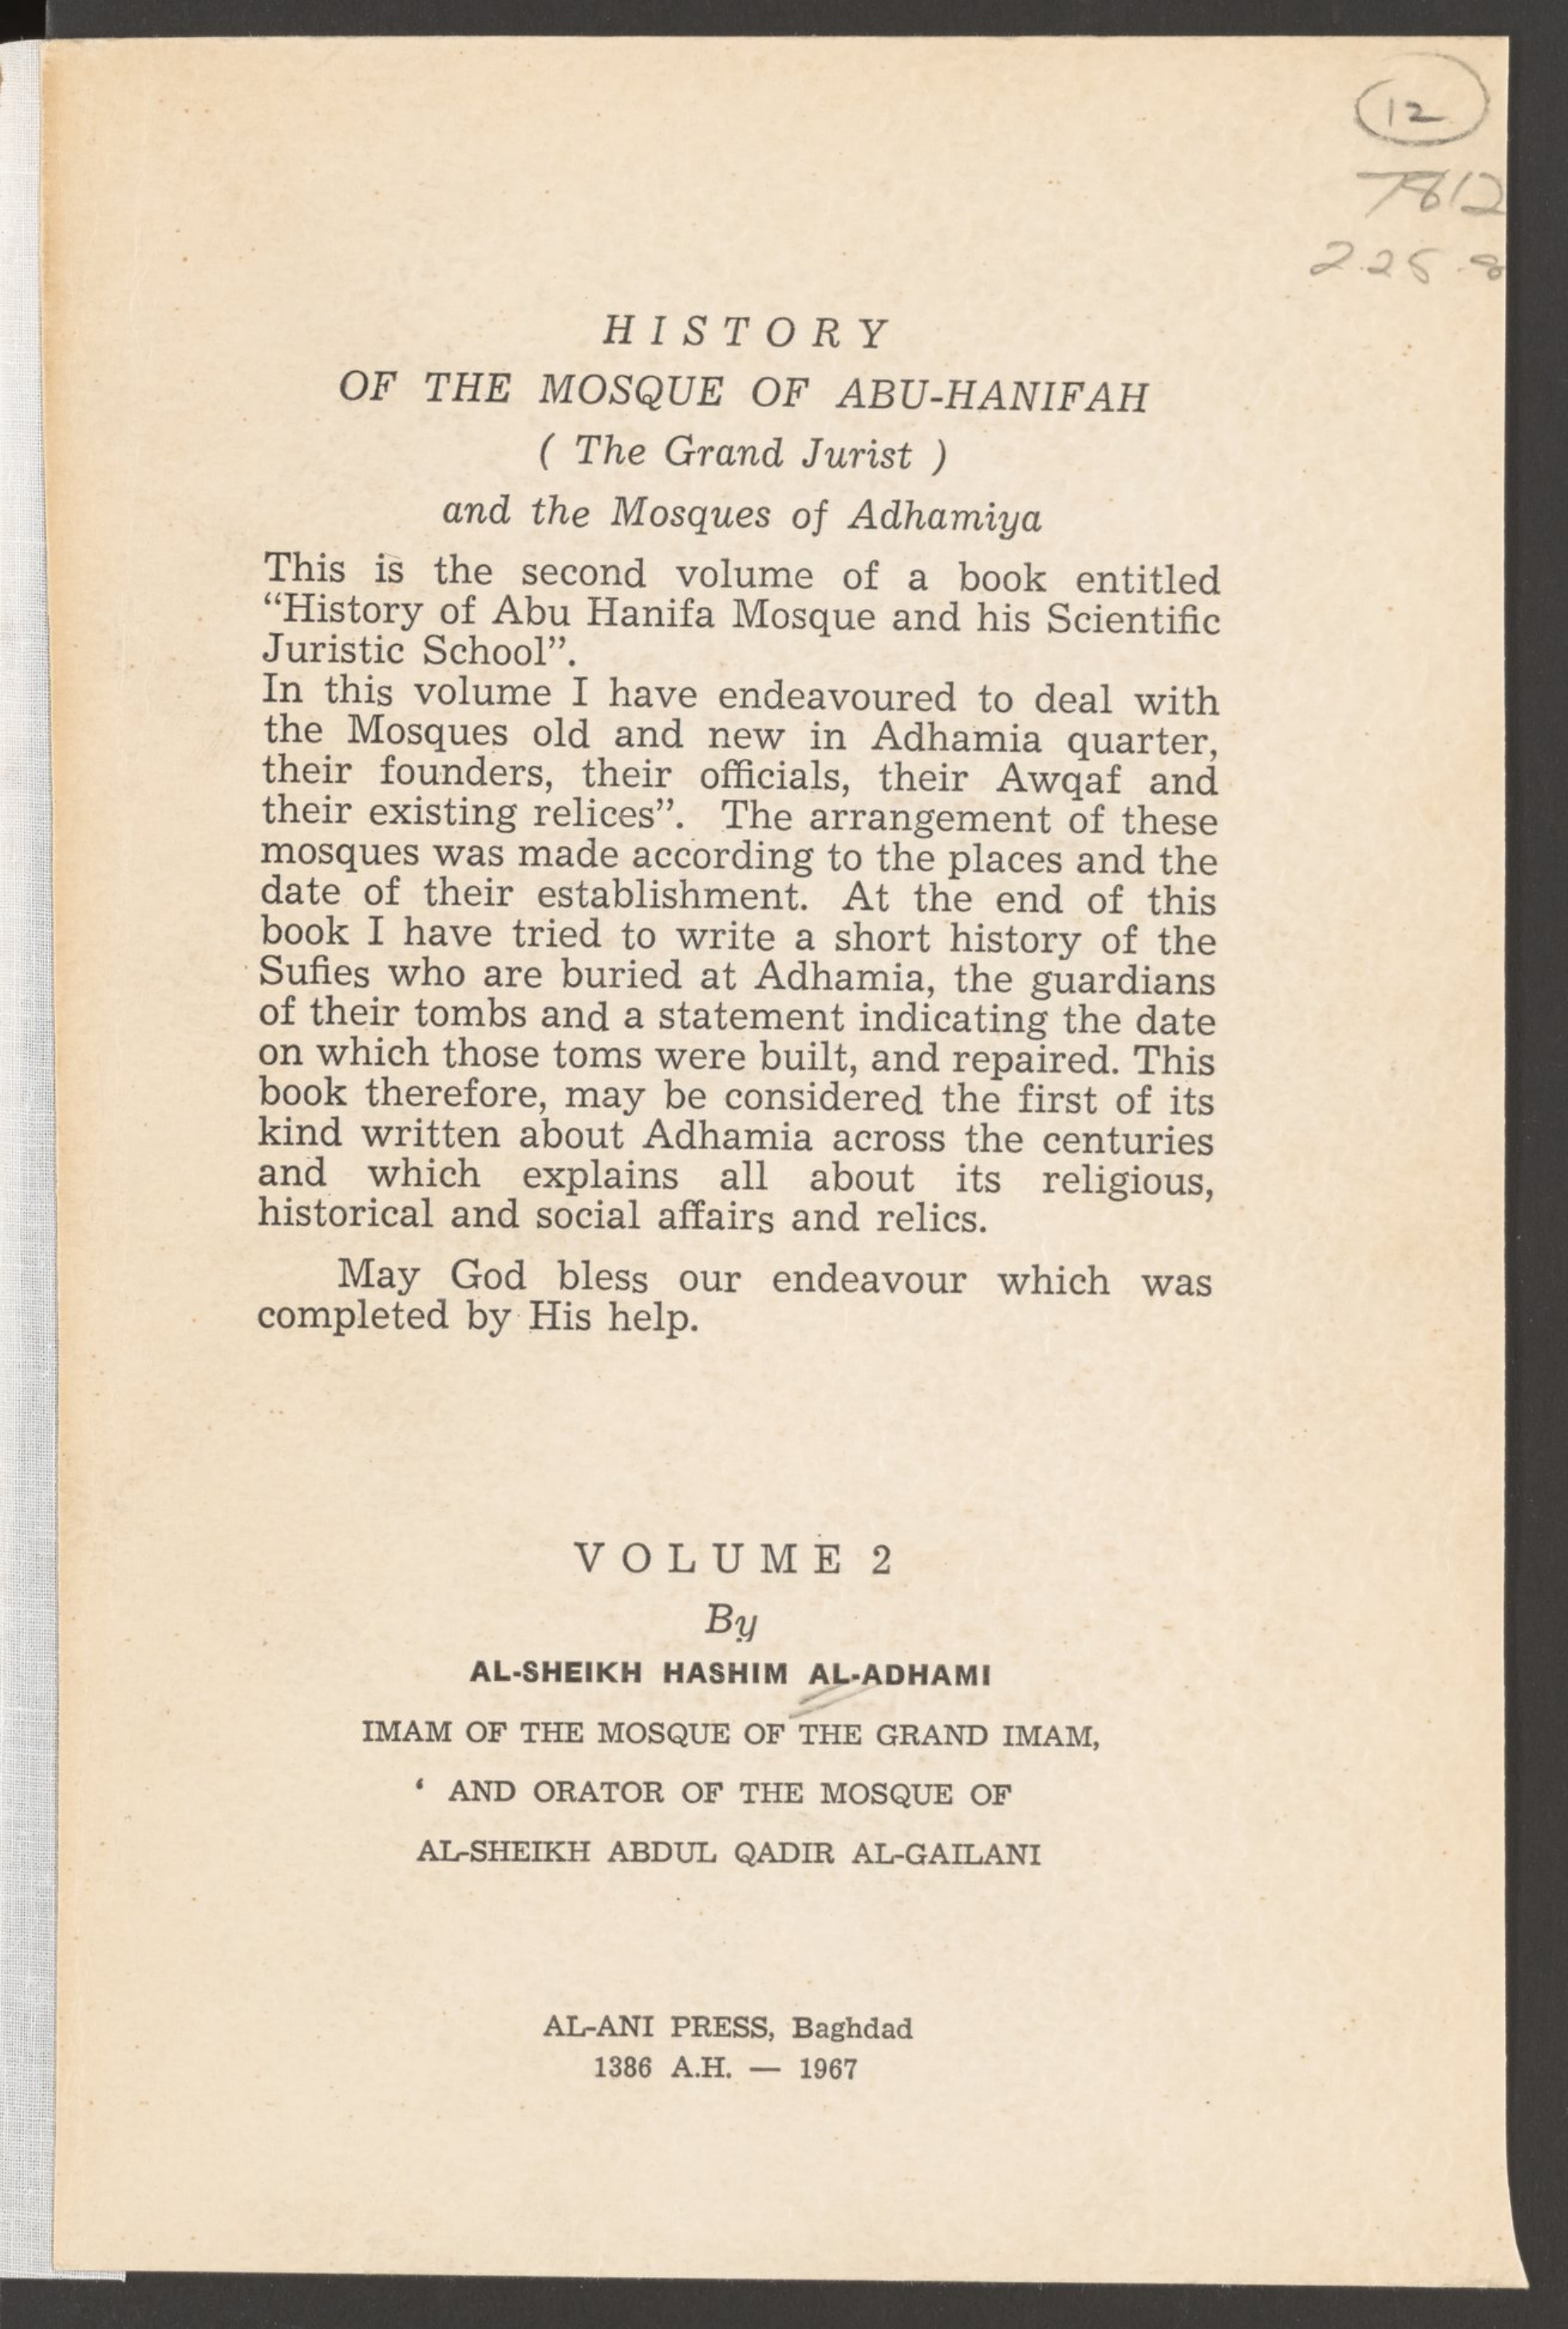 12
7812
2.25.8
HISTORY
OF THE MOSQUE OF ABU-HANIFAH
( The Grand Jurist )
and the Mosques of Adhamiya
This is the second volume of a book entitled
“History of Abu Hanifa Mosque and his Scientific
Juristic School”.
In this volume I have endeavoured to deal with
the Mosques old and new in Adhamia quarter,
their founders, their officials, their Awqaf and
their existing relices”. The arrangement of these
mosques was made according to the places and the
date of their establishment. At the end of this
book I have tried to write a short history of the
Sufies who are buried at Adhamia, the guardians
of their tombs and a statement indicating the date
on which those toms were built, and repaired. This
book therefore, may be considered the first of its
kind written about Adhamia across the centuries
and which explains all about its religious,
historical and social affairs and relics.
May God bless our endeavour which was
completed by His help.
VOLUME 2
By
AL-SHEIKH HASHIM AL-ADHAMI
IMAM OF THE MOSQUE OF THE GRAND IMAM,
‘ AND ORATOR OF THE MOSQUE OF
AL-SHEIKH ABDUL QADIR AL-GAILANI
AL-ANI PRESS, Baghdad
1386 A.H. — 1967